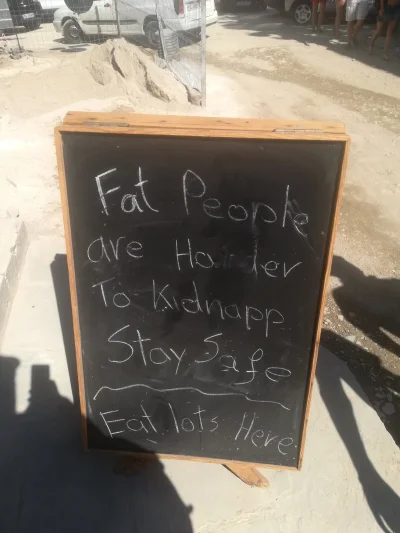 Fat People
are Harder
To Kidnapp
Stay Safe
Eat lots Here